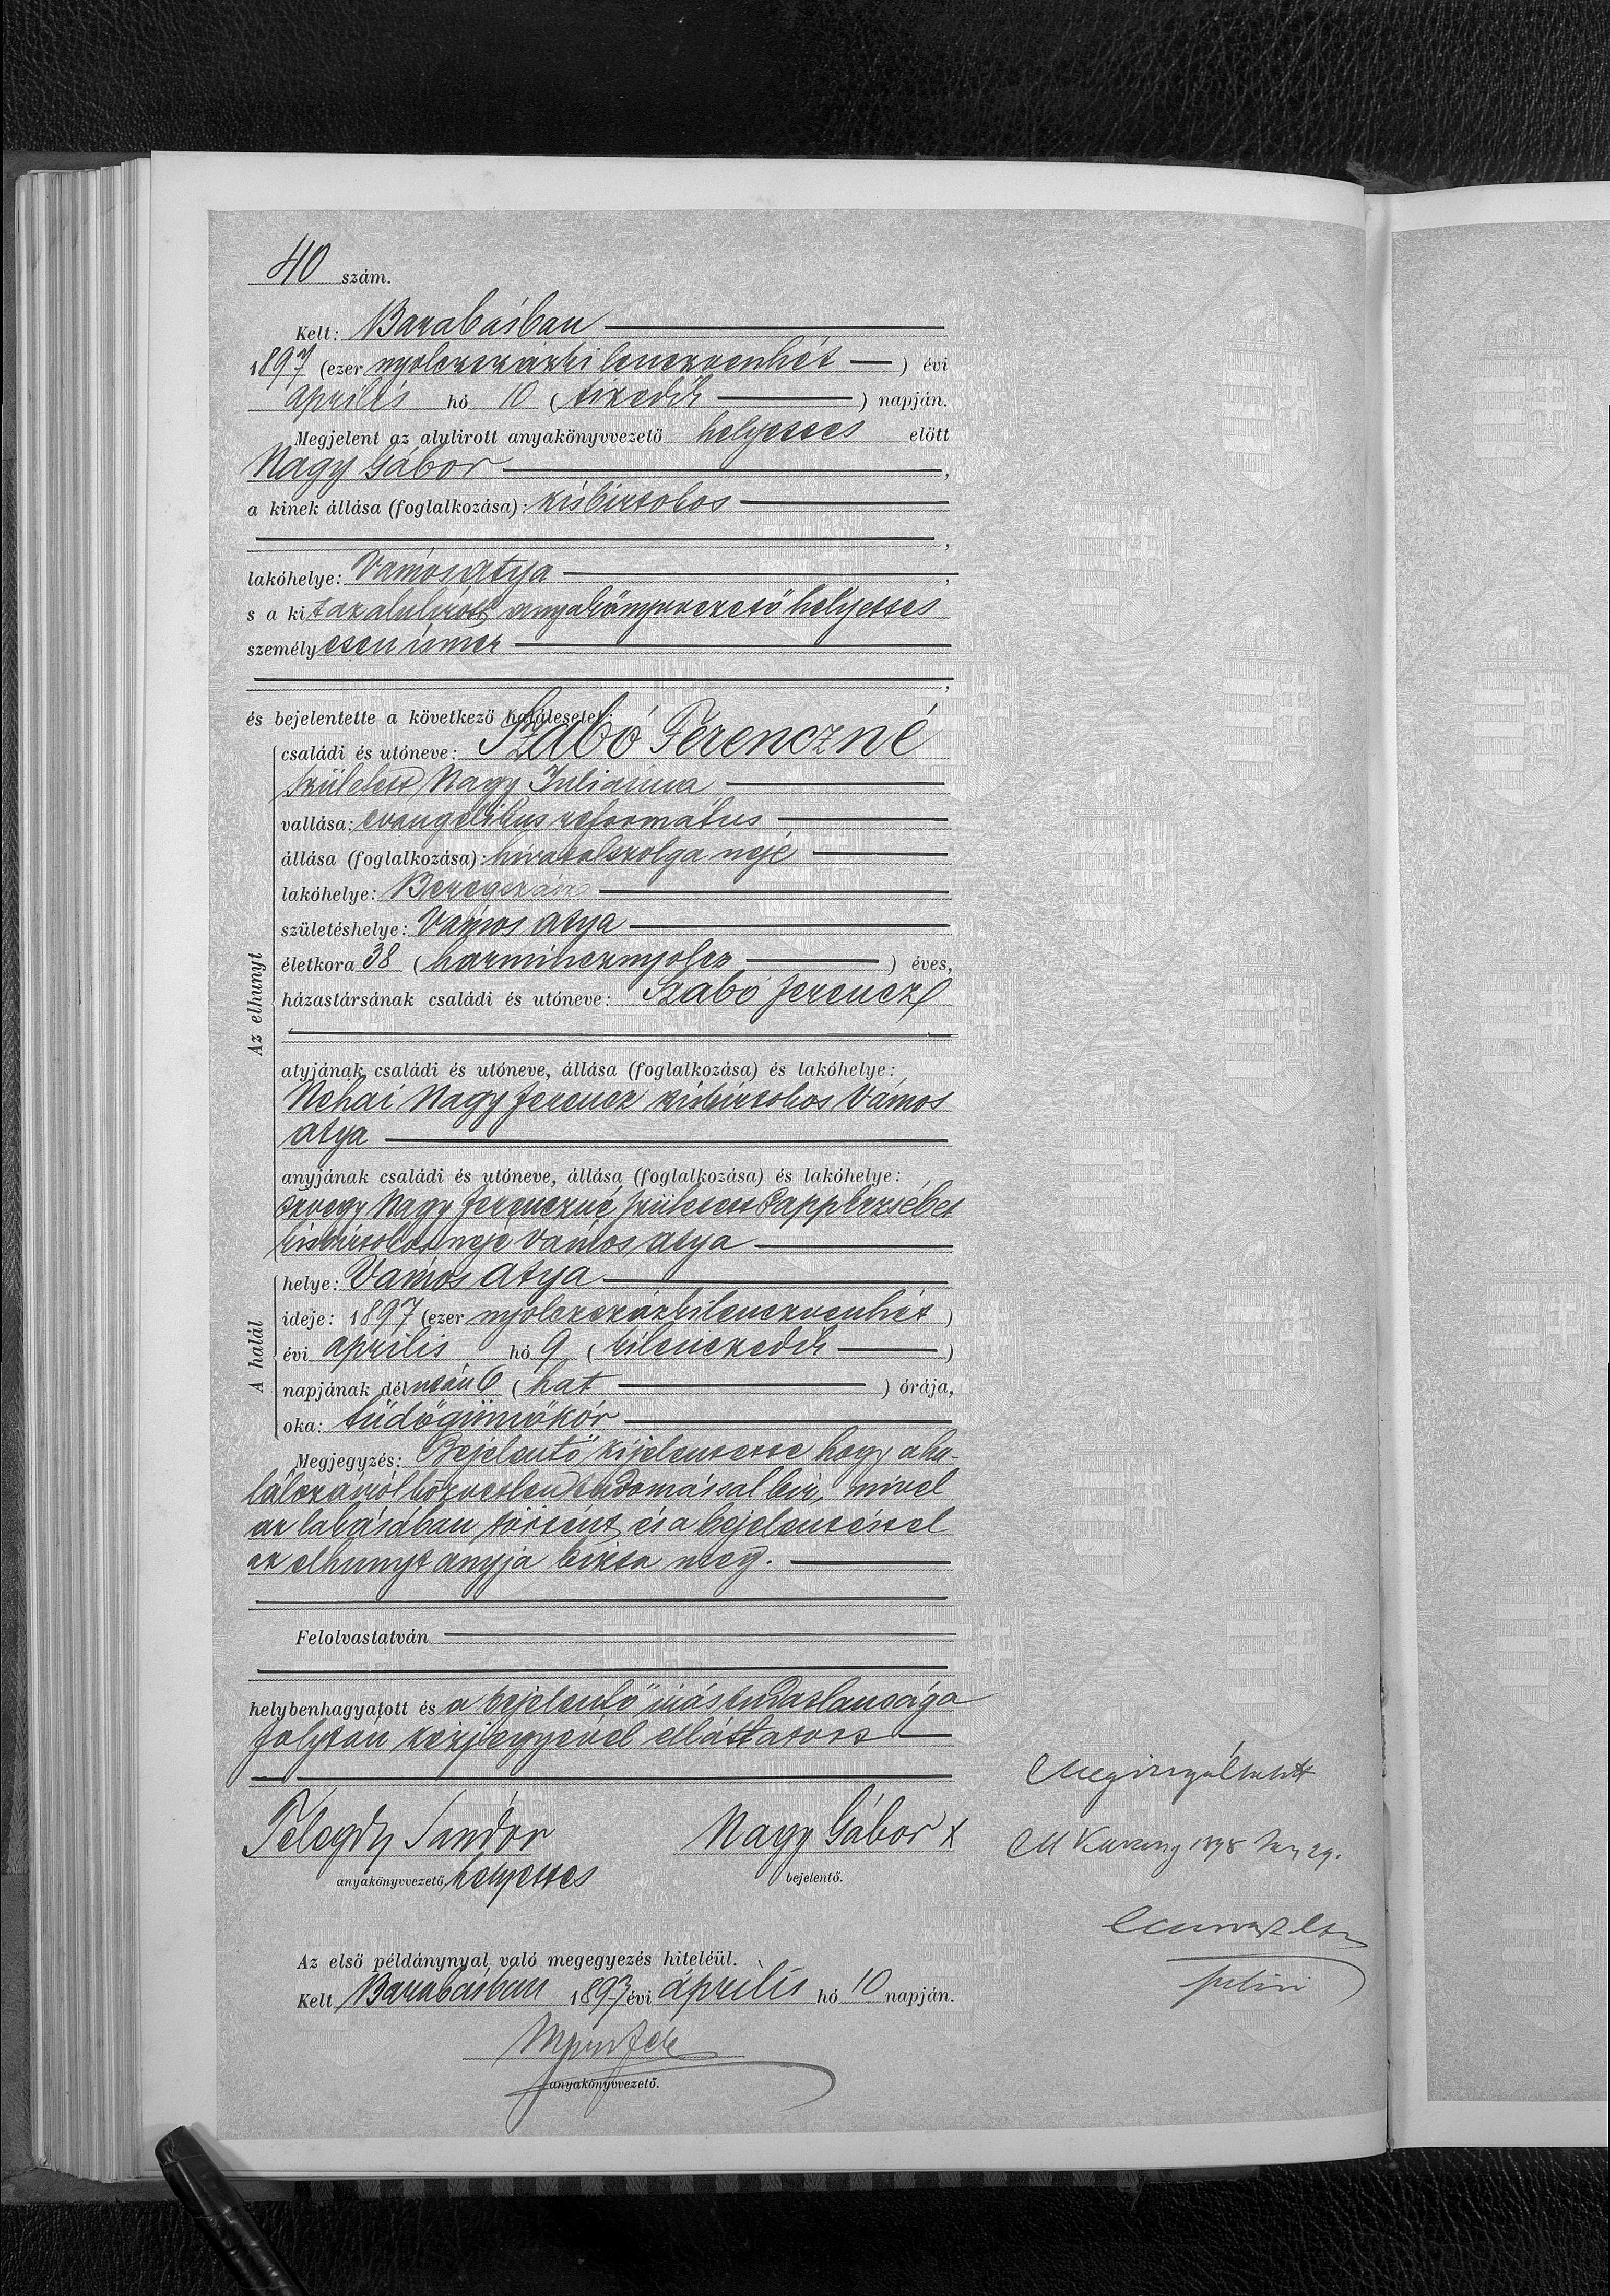 40 szám.
Kelt: Barabásban
1897 (ezer nyolczszázkilenczvenhét) évi
április hó 10 (tizedik) napján.
Megjelent az alulirott anyakönyvvezető helyettes előtt
Nagy Gábor,
a kinek állása (foglalkozása): kisbirtokos
,
lakóhelye: Vámosatya,
s a kit az alulirott anyakönyvvezető helyettes
személyesen ismer
,
és bejelentette a következő halálesetet:
Az elhunyt
családi és utóneve: Szabó Ferenczné
született Nagy Juliánna
vallása: evangelikus református
állása (foglalkozása): hivatalszolga neje
lakóhelye: Beregszász
születéshelye: Vámos atya
életkora 38 (harmincznyolcz) éves,
házastársának családi és utóneve: Szabó Ferencz
atyjának családi és utóneve, állása (foglalkozása) és lakóhelye:
Néhai Nagy Ferencz kisbirtokos Vámos
atya
anyjának családi és utóneve, állása (foglalkozása) és lakóhelye:
özvegy Nagy Ferenczné született Papp Erzsébet
kisbirtokos neje Vámos atya
A halál
helye: Vámos atya
ideje: 1897 (ezer nyolczszázkilenczvenhét)
évi április hó 9 (kilenczedik)
napjának délután 6 (hat) órája,
oka: tüdőgümőkór
Megjegyzés: Bejelentő kijelentette hogy a ha-
lálozásról közvetlen tudomással bir, mivel
az lakásában történt és a bejelentéssel
az elhunyt anyja bizta meg.
Felolvastatván
helybenhagyatott és a bejelentő irástudatlansága
folytán kézjegyével elláttatott
Telegdy Sándor Nagy Gábor x
anyakönyvvezető, helyettes bejelentő.
Megvizsgáltatott
1898
Az első példánynyal való megegyezés hiteléül.
Kelt Barabásban 1897 évi április hó 10 napján.
anyakönyvvezető.